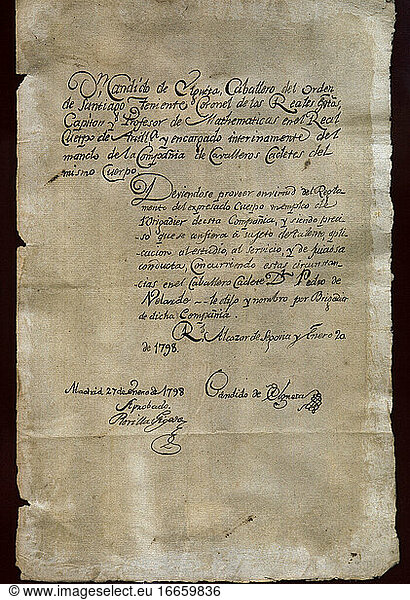 Dn. Candido de Elgueta, Caballero del Orden
de Santiago, Teniente Coronel de los Reales Extos,
Capitan y Profesor de Mathematicas en el Real
Cuerpo de Artilla. y encargado interinamente del
mando de la Compañia de Cavalleros Cadetes del
mismo Cuerpo.
Deviendose proveer en virtud del Regla-
mento del expresado Cuerpo un empleo de
Brigadier de esta Compañia, y siendo preci-
so que se confiera á sujeto de talento, apli-
cacion al estudio, al servicio, y de juiciosa
conducta, Concurriendo estas circunstan-
cias en el Caballero Cadete Dn. Pedro de
Velarde le elijo y nombro por Brigadier
de dicha Compañia.
Rl. Alcazar de Segovia y Enero 20
de 1798.
Madrid 27 de Enero de 1798
Candido de Elgueta
Aprobado.
IMAGO
imago-images.com
ID: 16659836